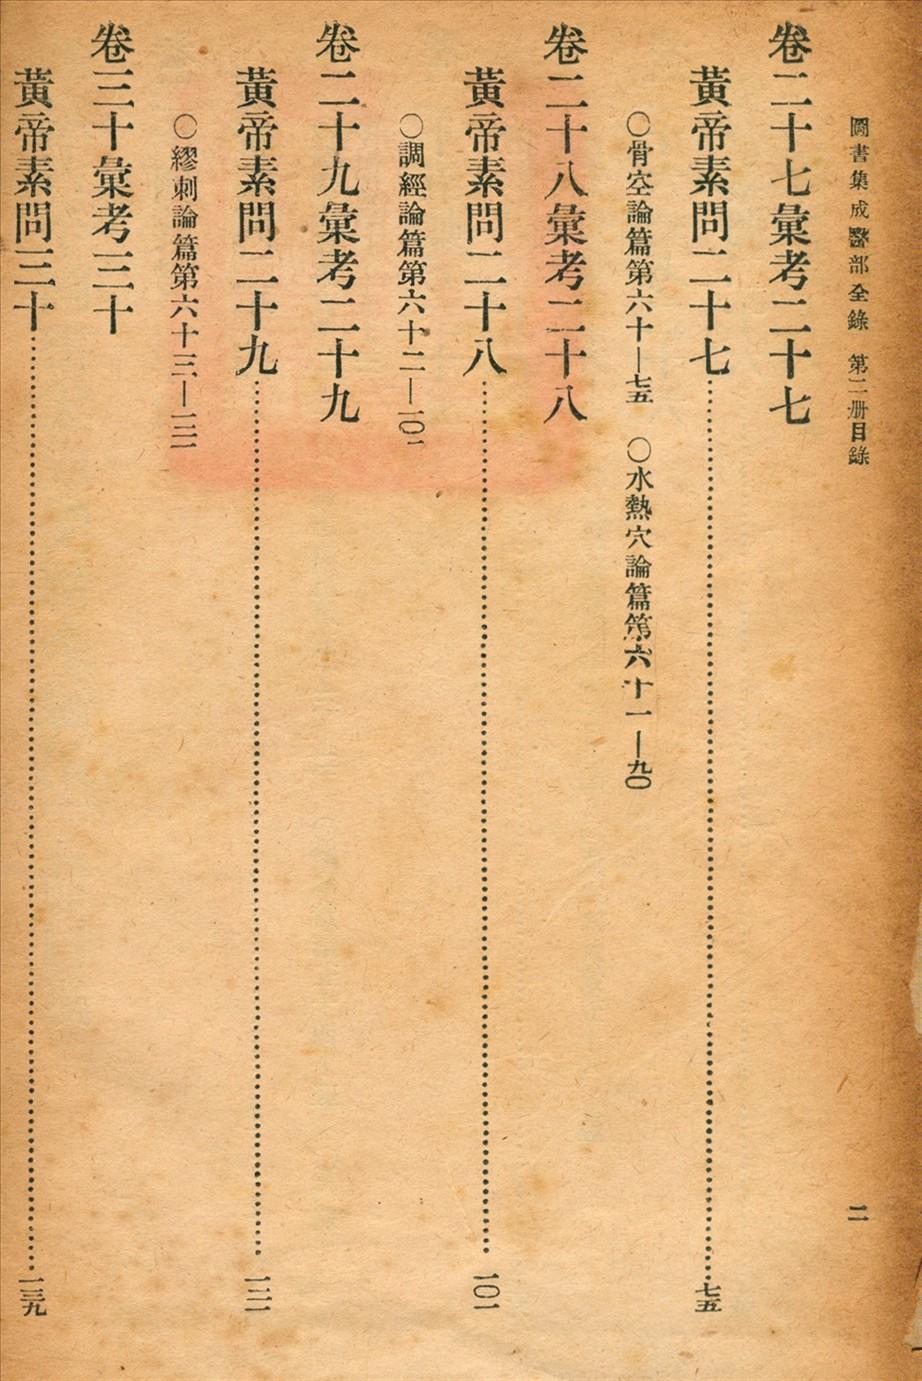 圖書集成醫部全錄 第二册目錄 二
卷二十七彙考二十七
黃帝素問二十七……七五
〇骨空論篇第六十—七五 〇水熱穴論篇第六十一—九〇
卷二十八彙考二十八
黃帝素問二十八……一〇一
〇調經論篇第六十二—一〇一
卷二十九彙考二十九
黃帝素問二十九……一二一
〇繆刺論篇第六十三—一二一
卷三十彙考三十
黃帝素問三十……一三九